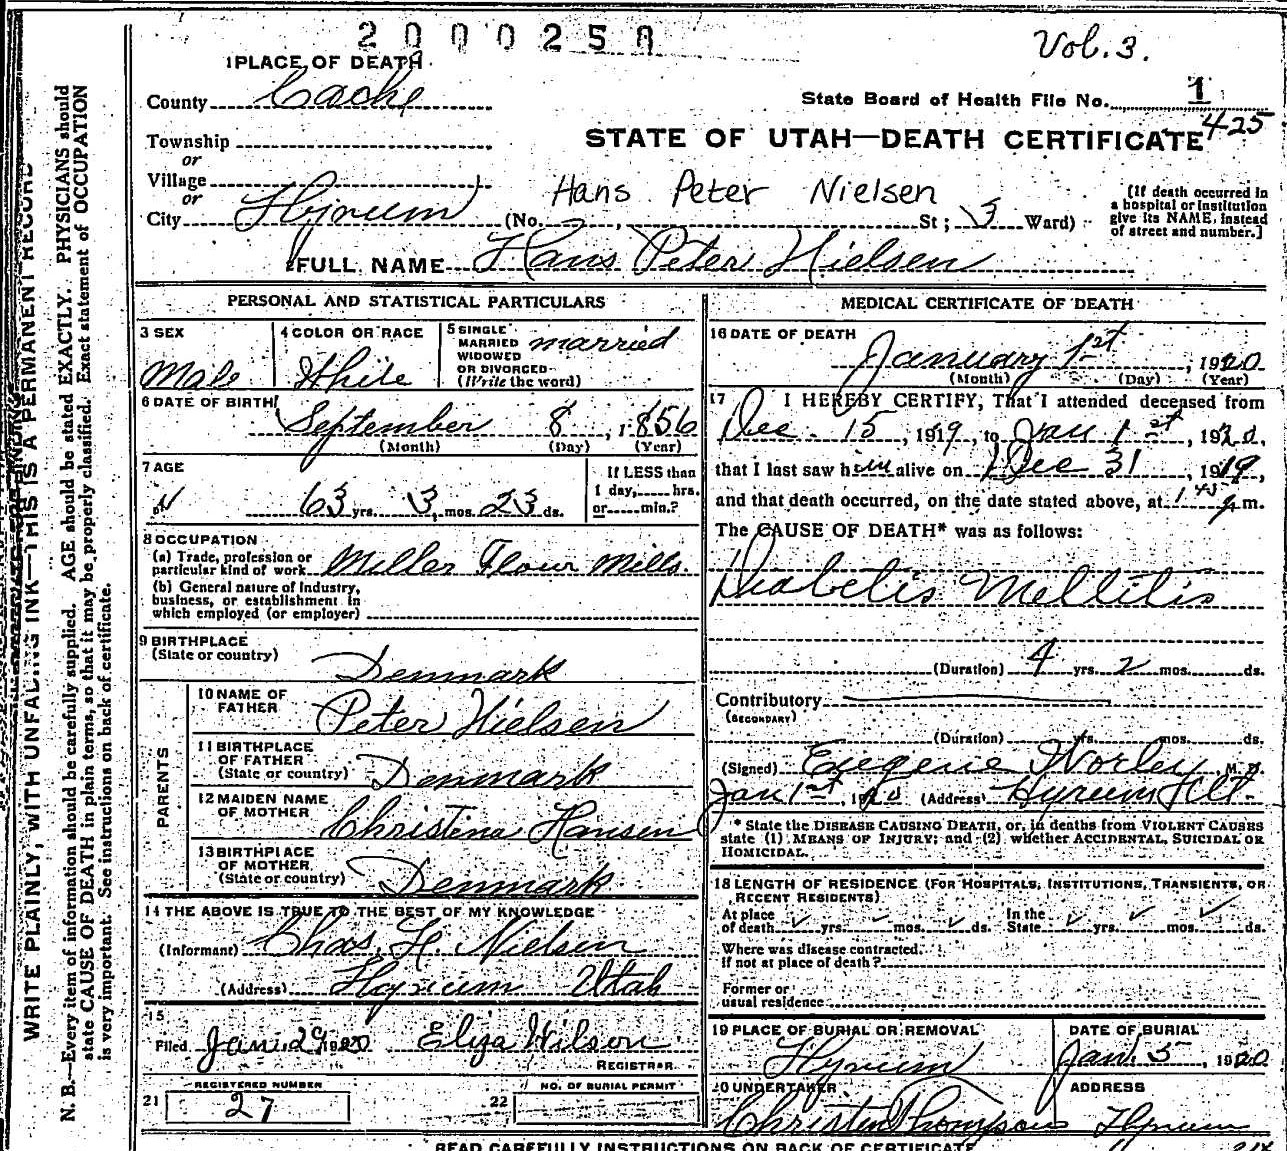 2000258
Vol. 3.
1 PLACE OF DEATH
County Cache
State Board of Health File No. 1
425
STATE OF UTAH—DEATH CERTIFICATE
Township
or
Village
or
City Hyrum (No. St; 3 Ward)
Hans Peter Nielsen
(If death occurred in
a hospital or institution
give its NAME, instead
of street and number.]
FULL NAME Hans Peter Nielsen
PERSONAL AND STATISTICAL PARTICULARS
3 SEX
Male
4 COLOR OR RACE
White
5 SINGLE
MARRIED
WIDOWED
OR DIVORCED
(Write the word)
married
6 DATE OF BIRTH
September 8, 1856
(Month) (Day) (Year)
7 AGE
63 yrs. 3 mos. 23 ds.
If LESS than
1 day, hrs.
or min.?
8 OCCUPATION
(a) Trade, profession or
particular kind of work Miller Flour Mills.
(b) General nature of industry,
business, or establishment in
which employed (or employer)
9 BIRTHPLACE
(State or country)
Denmark
PARENTS
10 NAME OF
FATHER
Peter Nielsen
11 BIRTHPLACE
OF FATHER
(State or country) Denmark
12 MAIDEN NAME
OF MOTHER
Christina Hansen
13 BIRTHPLACE
OF MOTHER
(State or country) Denmark
14 THE ABOVE IS TRUE TO THE BEST OF MY KNOWLEDGE
(Informant) Chas. H. Nielsen
(Address) Hyrum Utah
15
Filed Jan. 29 1920 Eliza Wilson
REGISTRAR.
REGISTERED NUMBER
21 27
NO. OF BURIAL PERMIT
22
MEDICAL CERTIFICATE OF DEATH
16 DATE OF DEATH
January 1st, 1920
(Month) (Day) (Year)
17 I HEREBY CERTIFY, That I attended deceased from
Dec. 15, 1919, to Jan 1st, 1920,
that I last saw him alive on Dec 31, 1919,
and that death occurred, on the date stated above, at 1 m.
The CAUSE OF DEATH* was as follows:
Diabetis Mellitis
(Duration) 4 yrs. 2 mos. ds.
Contributory
(SECONDARY)
(Duration) yrs. mos. ds.
(Signed) Eugene Worley M. D.
Jan 1st, 1920 (Address) Hyrum Ut.
* State the DISEASE CAUSING DEATH, or, in deaths from VIOLENT CAUSES
state (1) MEANS OF INJURY; and (2) whether ACCIDENTAL, SUICIDAL OR
HOMICIDAL.
18 LENGTH OF RESIDENCE (FOR HOSPITALS, INSTITUTIONS, TRANSIENTS, OR
RECENT RESIDENTS)
At place
of death yrs. mos. ds.
In the
State yrs. mos. ds.
Where was disease contracted
If not at place of death?
Former or
usual residence
19 PLACE OF BURIAL OR REMOVAL
Hyrum
DATE OF BURIAL
Jan. 5, 1920
20 UNDERTAKER
Christen Thompson
ADDRESS
Hyrum
READ CAREFULLY INSTRUCTIONS ON BACK OF CERTIFICATE
WRITE PLAINLY, WITH UNFADING INK—THIS IS A PERMANENT RECORD
N. B.—Every item of information should be carefully supplied. AGE should be stated EXACTLY. PHYSICIANS should
state CAUSE OF DEATH in plain terms, so that it may be properly classified. Exact statement of OCCUPATION
is very important. See instructions on back of certificate.